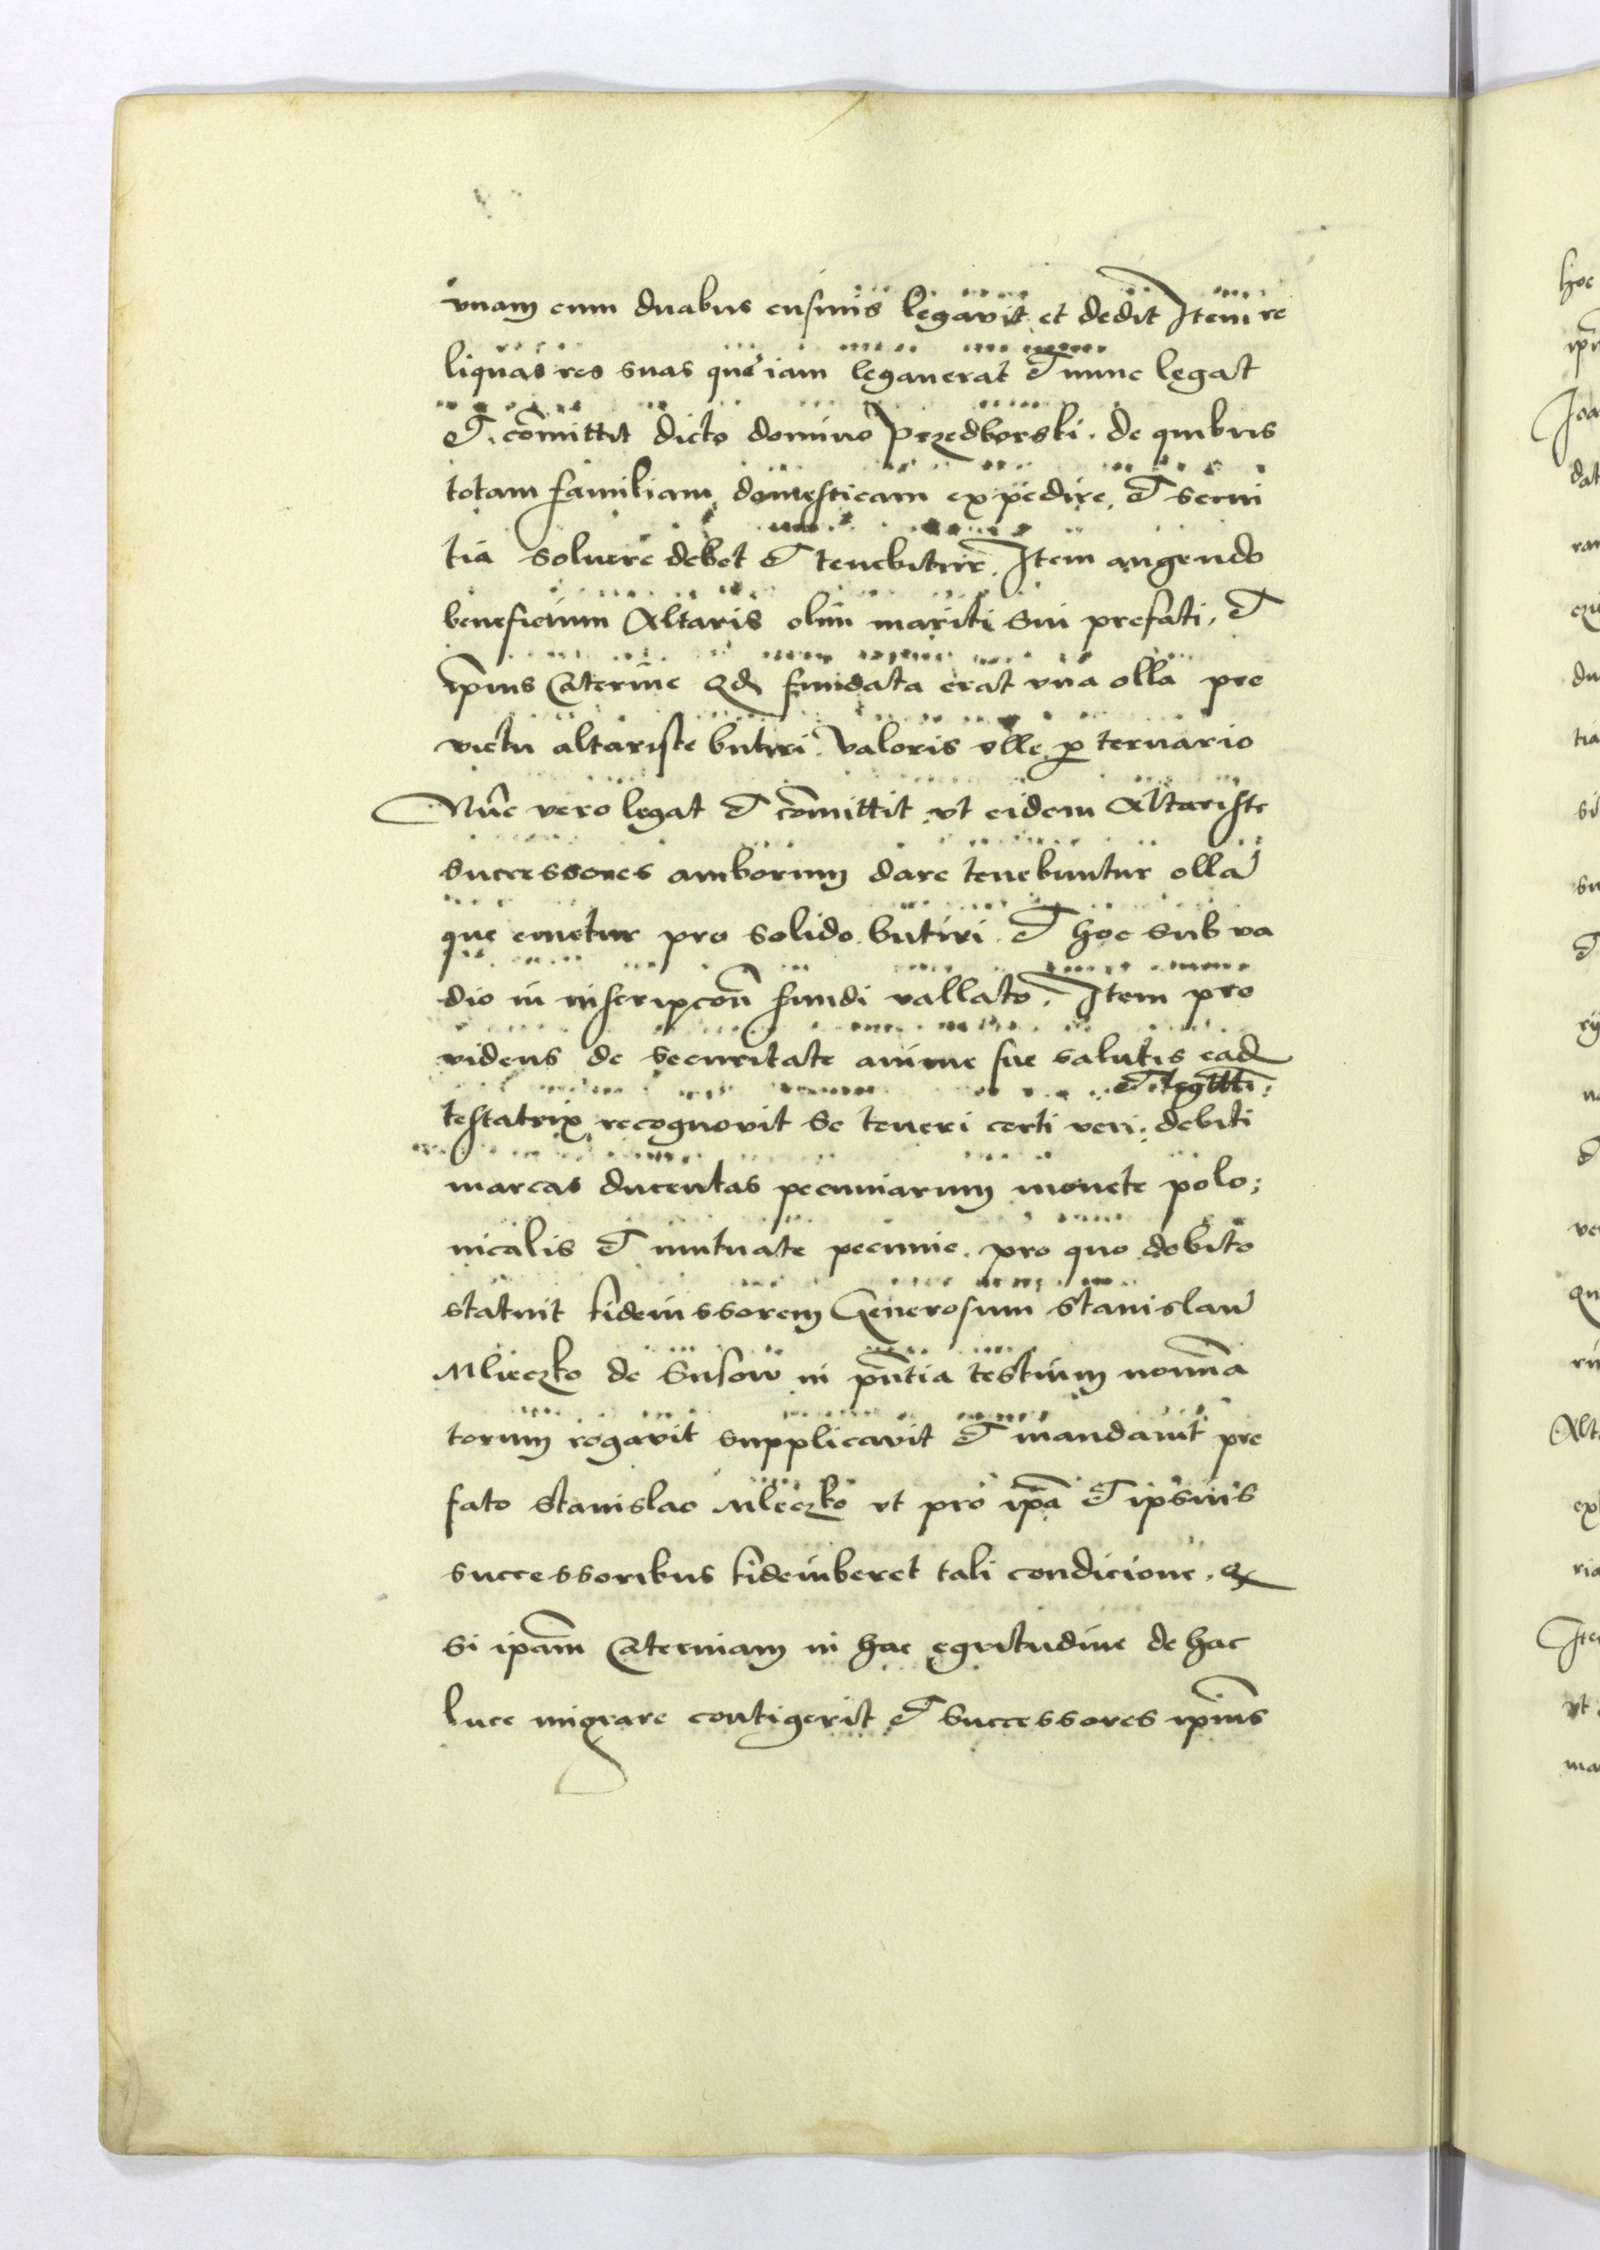 vnam cum duabus cusinis legavit et dedit Item re
liquas res suas que iam legauerat et nunc legat
et comittit dicto domino Przedborski. de quibus
totam familiam domesticam expedire, et serui
tia soluere debet et tenebitur. Item augendo
beneficium Altaris olim mariti sui prefati, et
ip̄ius Caterine qd fundata erat vna olla pre
victu altariste butiri. Valoris olle p ternario
Nūc vero legat et cōmittit vt eidem Altariste
successores amborum dare tenebuntur ollā
que emetur pro solido butiri. et hoc sub va
dio in inscripcōn fundi vallato. Item pro
videns de securitate anime sue salutis ead
et legttī:
testatrix recognovit se teneri certi veri: debiti
marcas ducentas pecuniarum monete polo;
nicalis et mutuate pecunie. pro quo debito
statuit fideiussorem Generosum Stanislaū
Mleczko de Susow in pn̄tia testium nomīa
torum rogavit supplicavit et mandauit pre
fato Stanislao Mleczko vt pro ip̄a et ipsius
successoribus fideiuberet tali condicione. q
si ipām Caterinam in hac egritudine de hac
luce migrare contigerit et successores ip̄ius